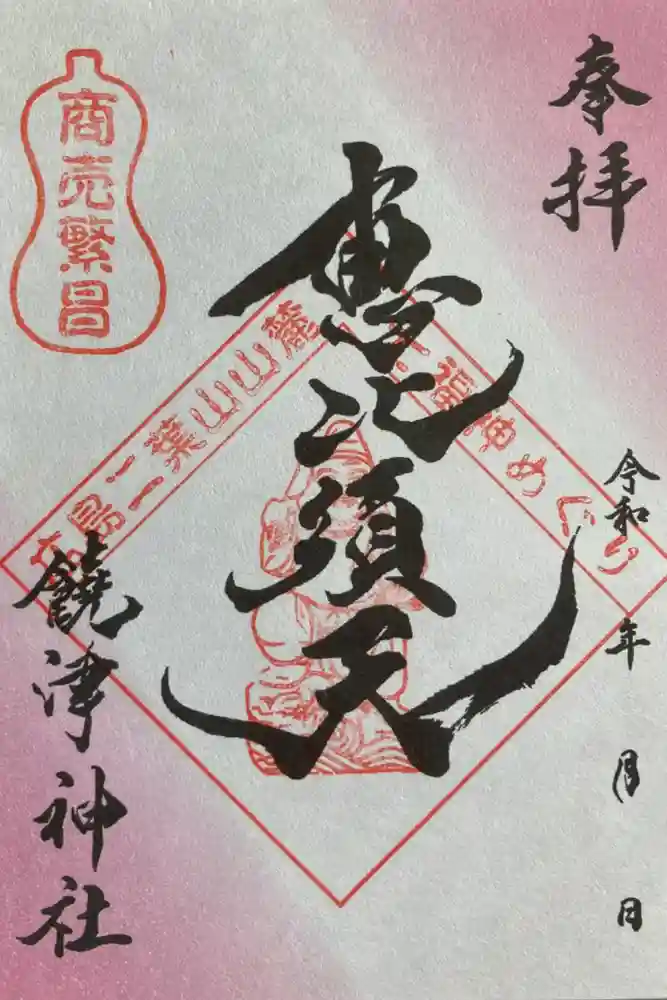 奉拝
商売繁昌
恵比須天
広島二葉山山麓
七福神めぐり
令和 年 月 日
饒津神社